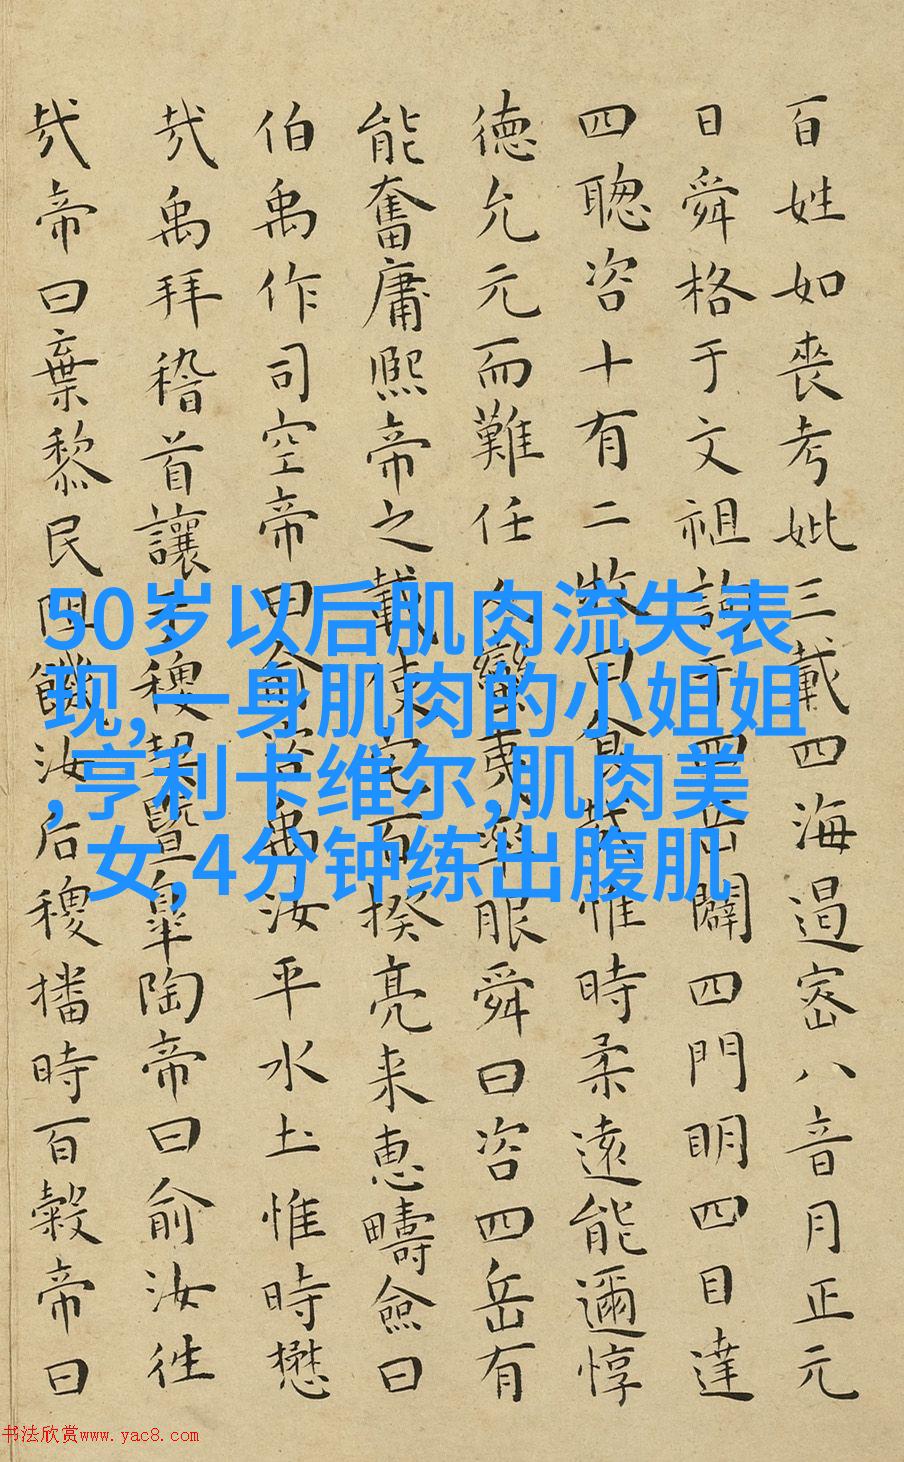 百姓如喪考妣三載四海遏密八音月正元
日舜格于文祖詢于四岳闢四門明四目達
四聰咨十有二牧曰食哉惟時柔遠能邇惇
德允元而難任人蠻夷率服舜曰咨四岳有
能奮庸熙帝之載使宅百揆亮采惠疇僉曰
伯禹作司空帝曰俞咨禹汝平水土惟時懋
哉禹拜稽首讓于稷契暨皋陶帝曰俞汝往
哉帝曰棄黎民阻饑汝后稷播時百穀帝曰
50岁以后肌肉流失表
现,一身肌肉的小姐姐
,亨利卡维尔,肌肉美
女,4分钟练出腹肌
书法欣赏www.yac8.com